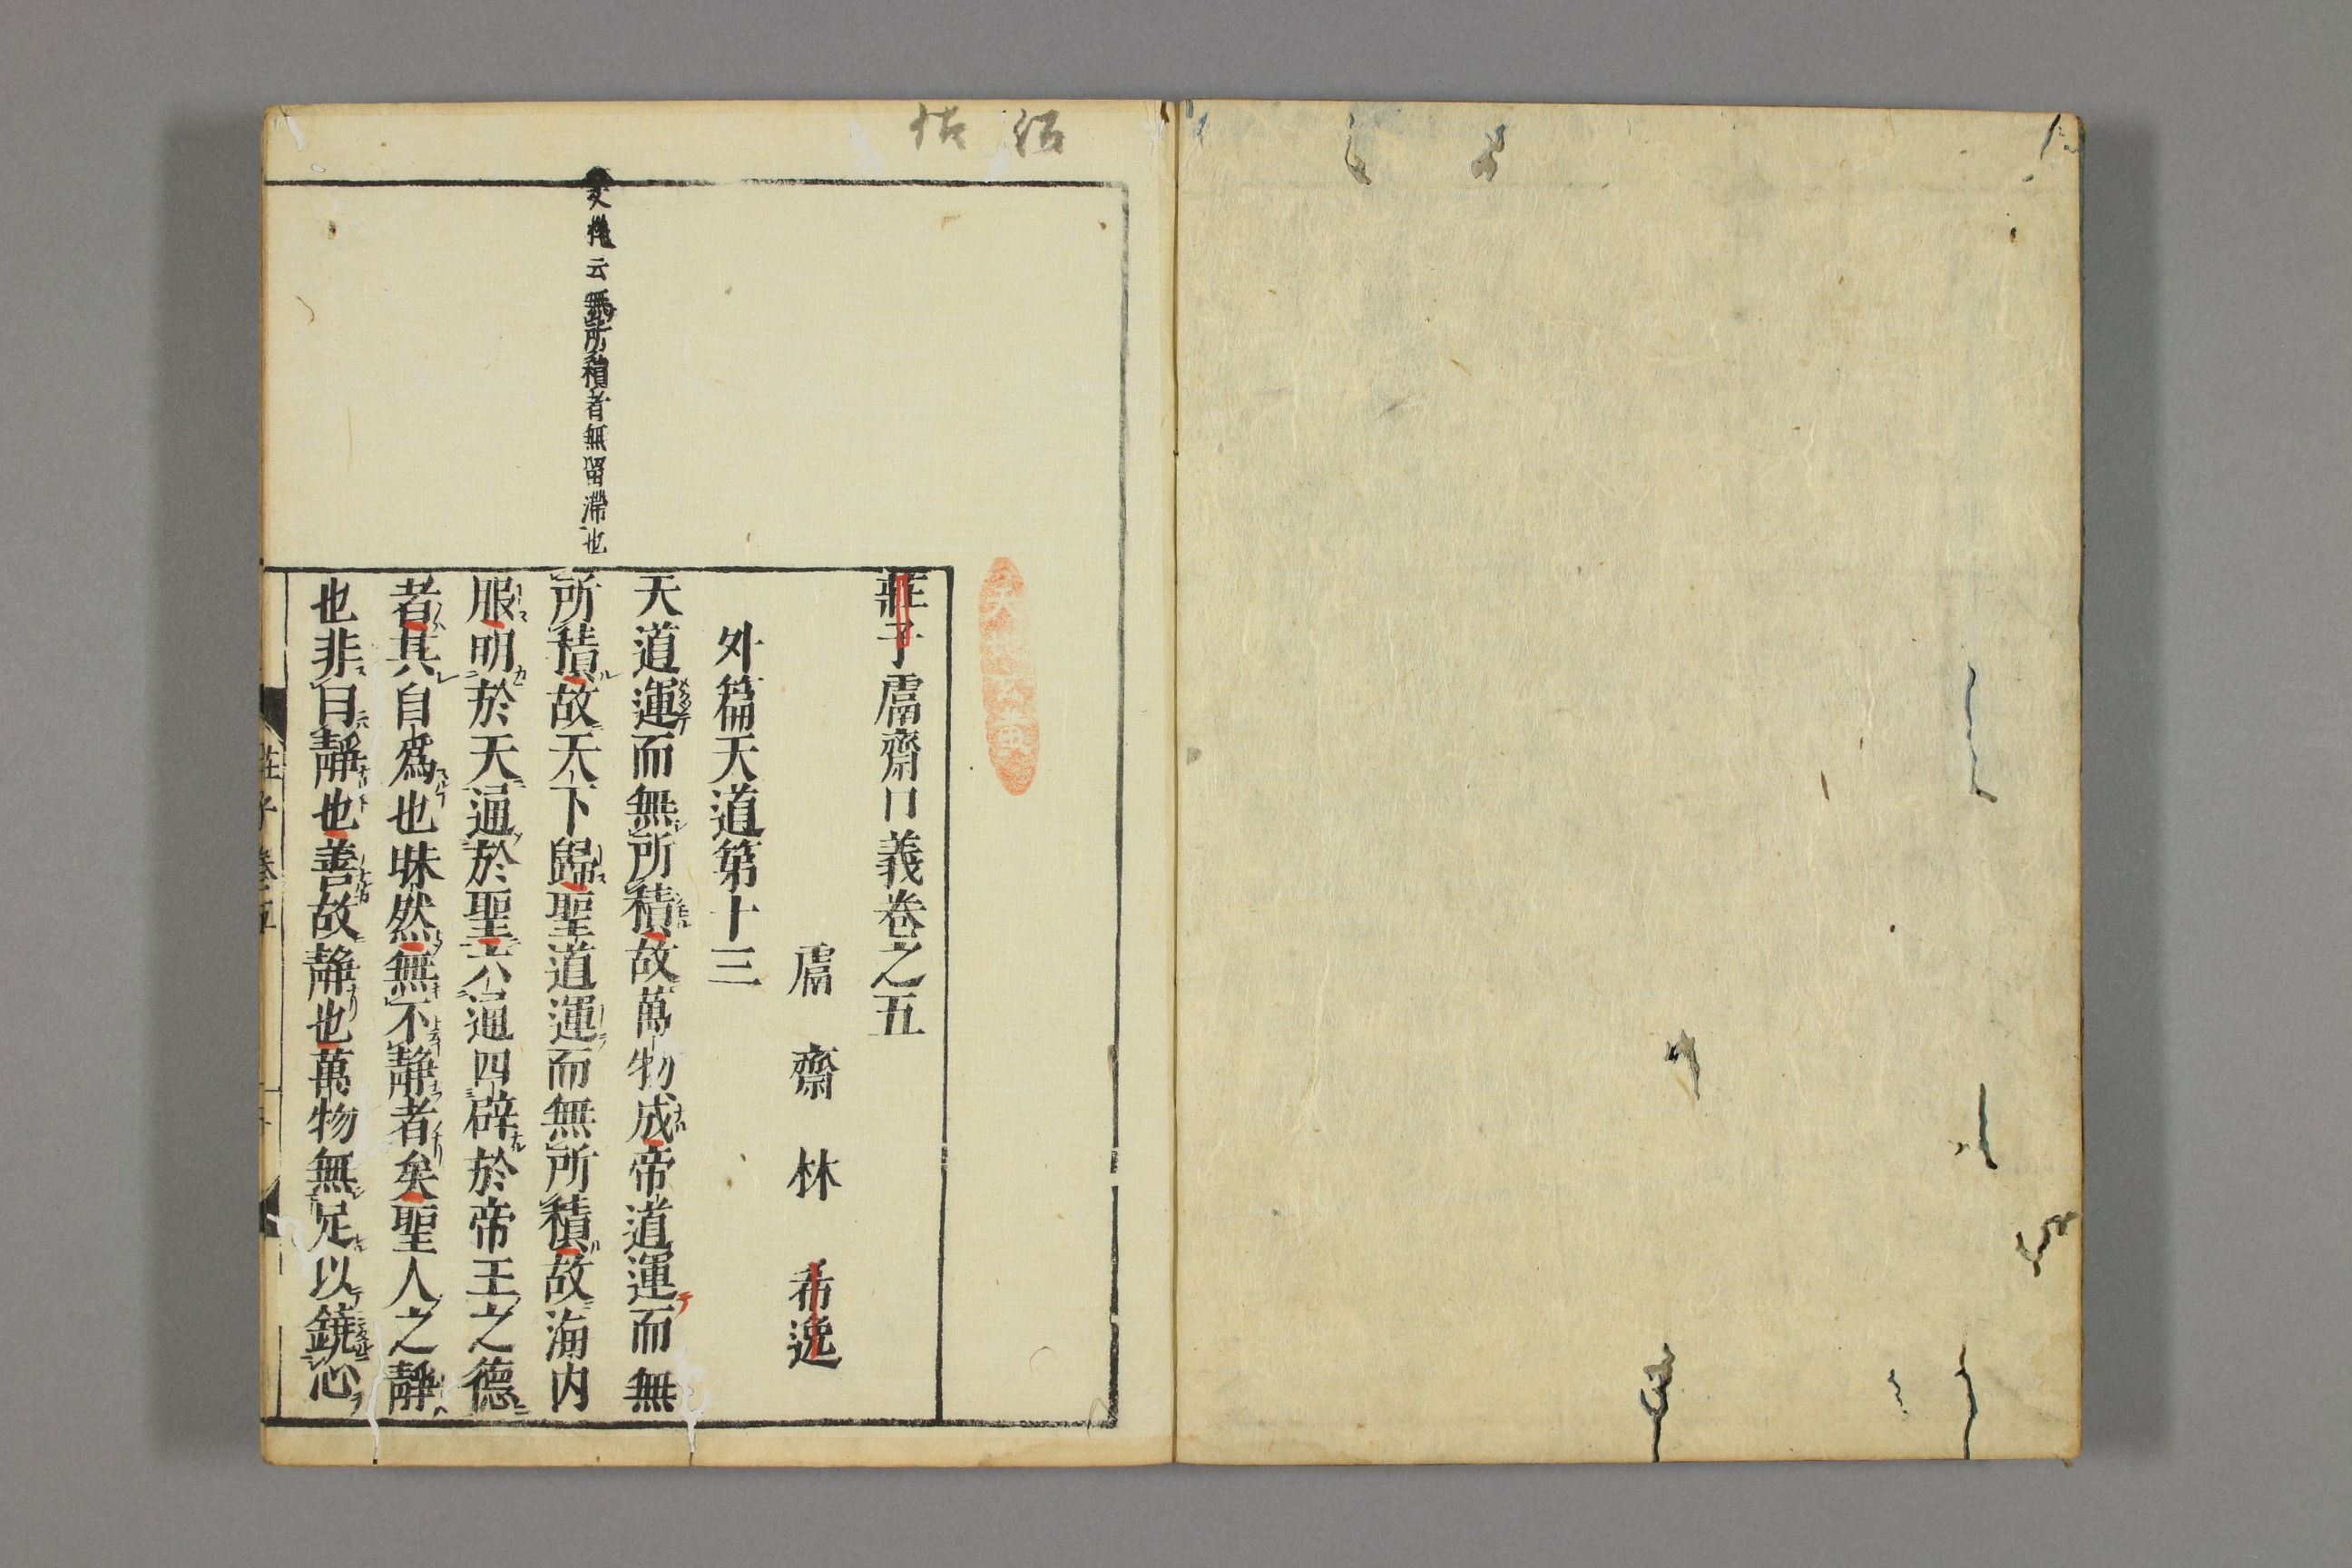 莊子鬳齋口義卷之五
鬳齋林希逸
外篇天道第十三
天道運而無所積故萬物成帝道運而無
所積故天下歸聖道運而無所積故海内
服明於天通於聖六通四辟於帝王之德
者其自爲也昧然無不靜者矣聖人之靜
也非曰靜也善故靜也萬物無足以鐃心
云無所積者無留滯也
莊子卷五